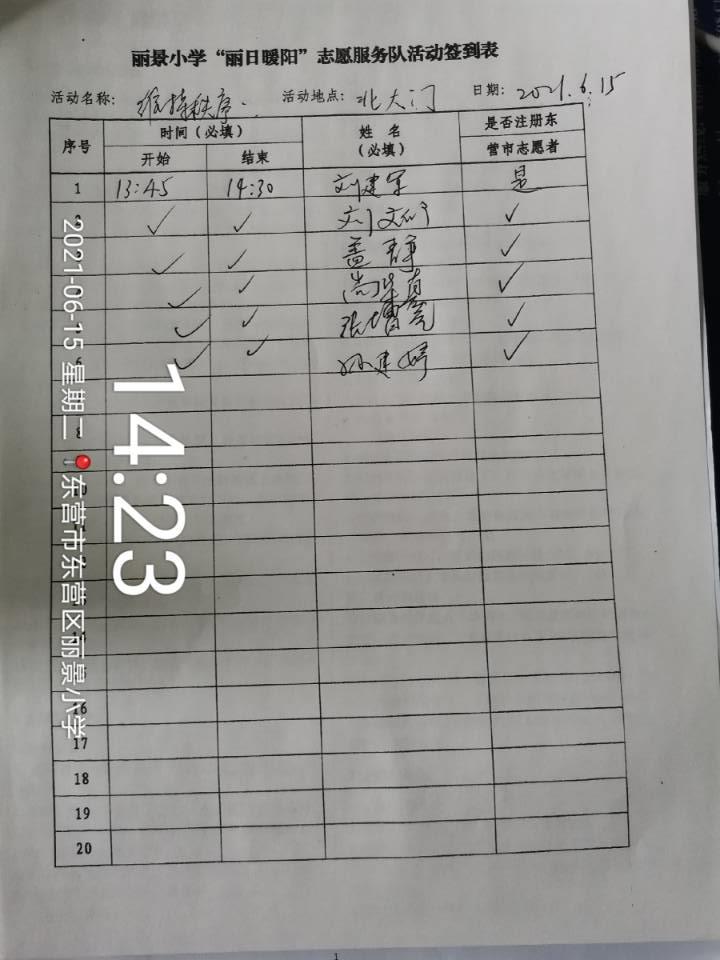 丽景小学“丽日暖阳”志愿服务队活动签到表
活动名称: 维持秩序 活动地点: 北大门 日期: 2021.6.15
序号 时间(必填) 姓名(必填) 是否注册东营市志愿者
开始 结束
1 13:45 14:30 刘建军 是
✓ ✓ ✓
✓ ✓ 孟静 ✓
✓ ✓ ✓
✓ ✓ ✓
6 ✓ ✓ 孙建婷 ✓
8
16
17
18
19
20
1
14:23
2021-06-15 星期二 东营市东营区丽景小学